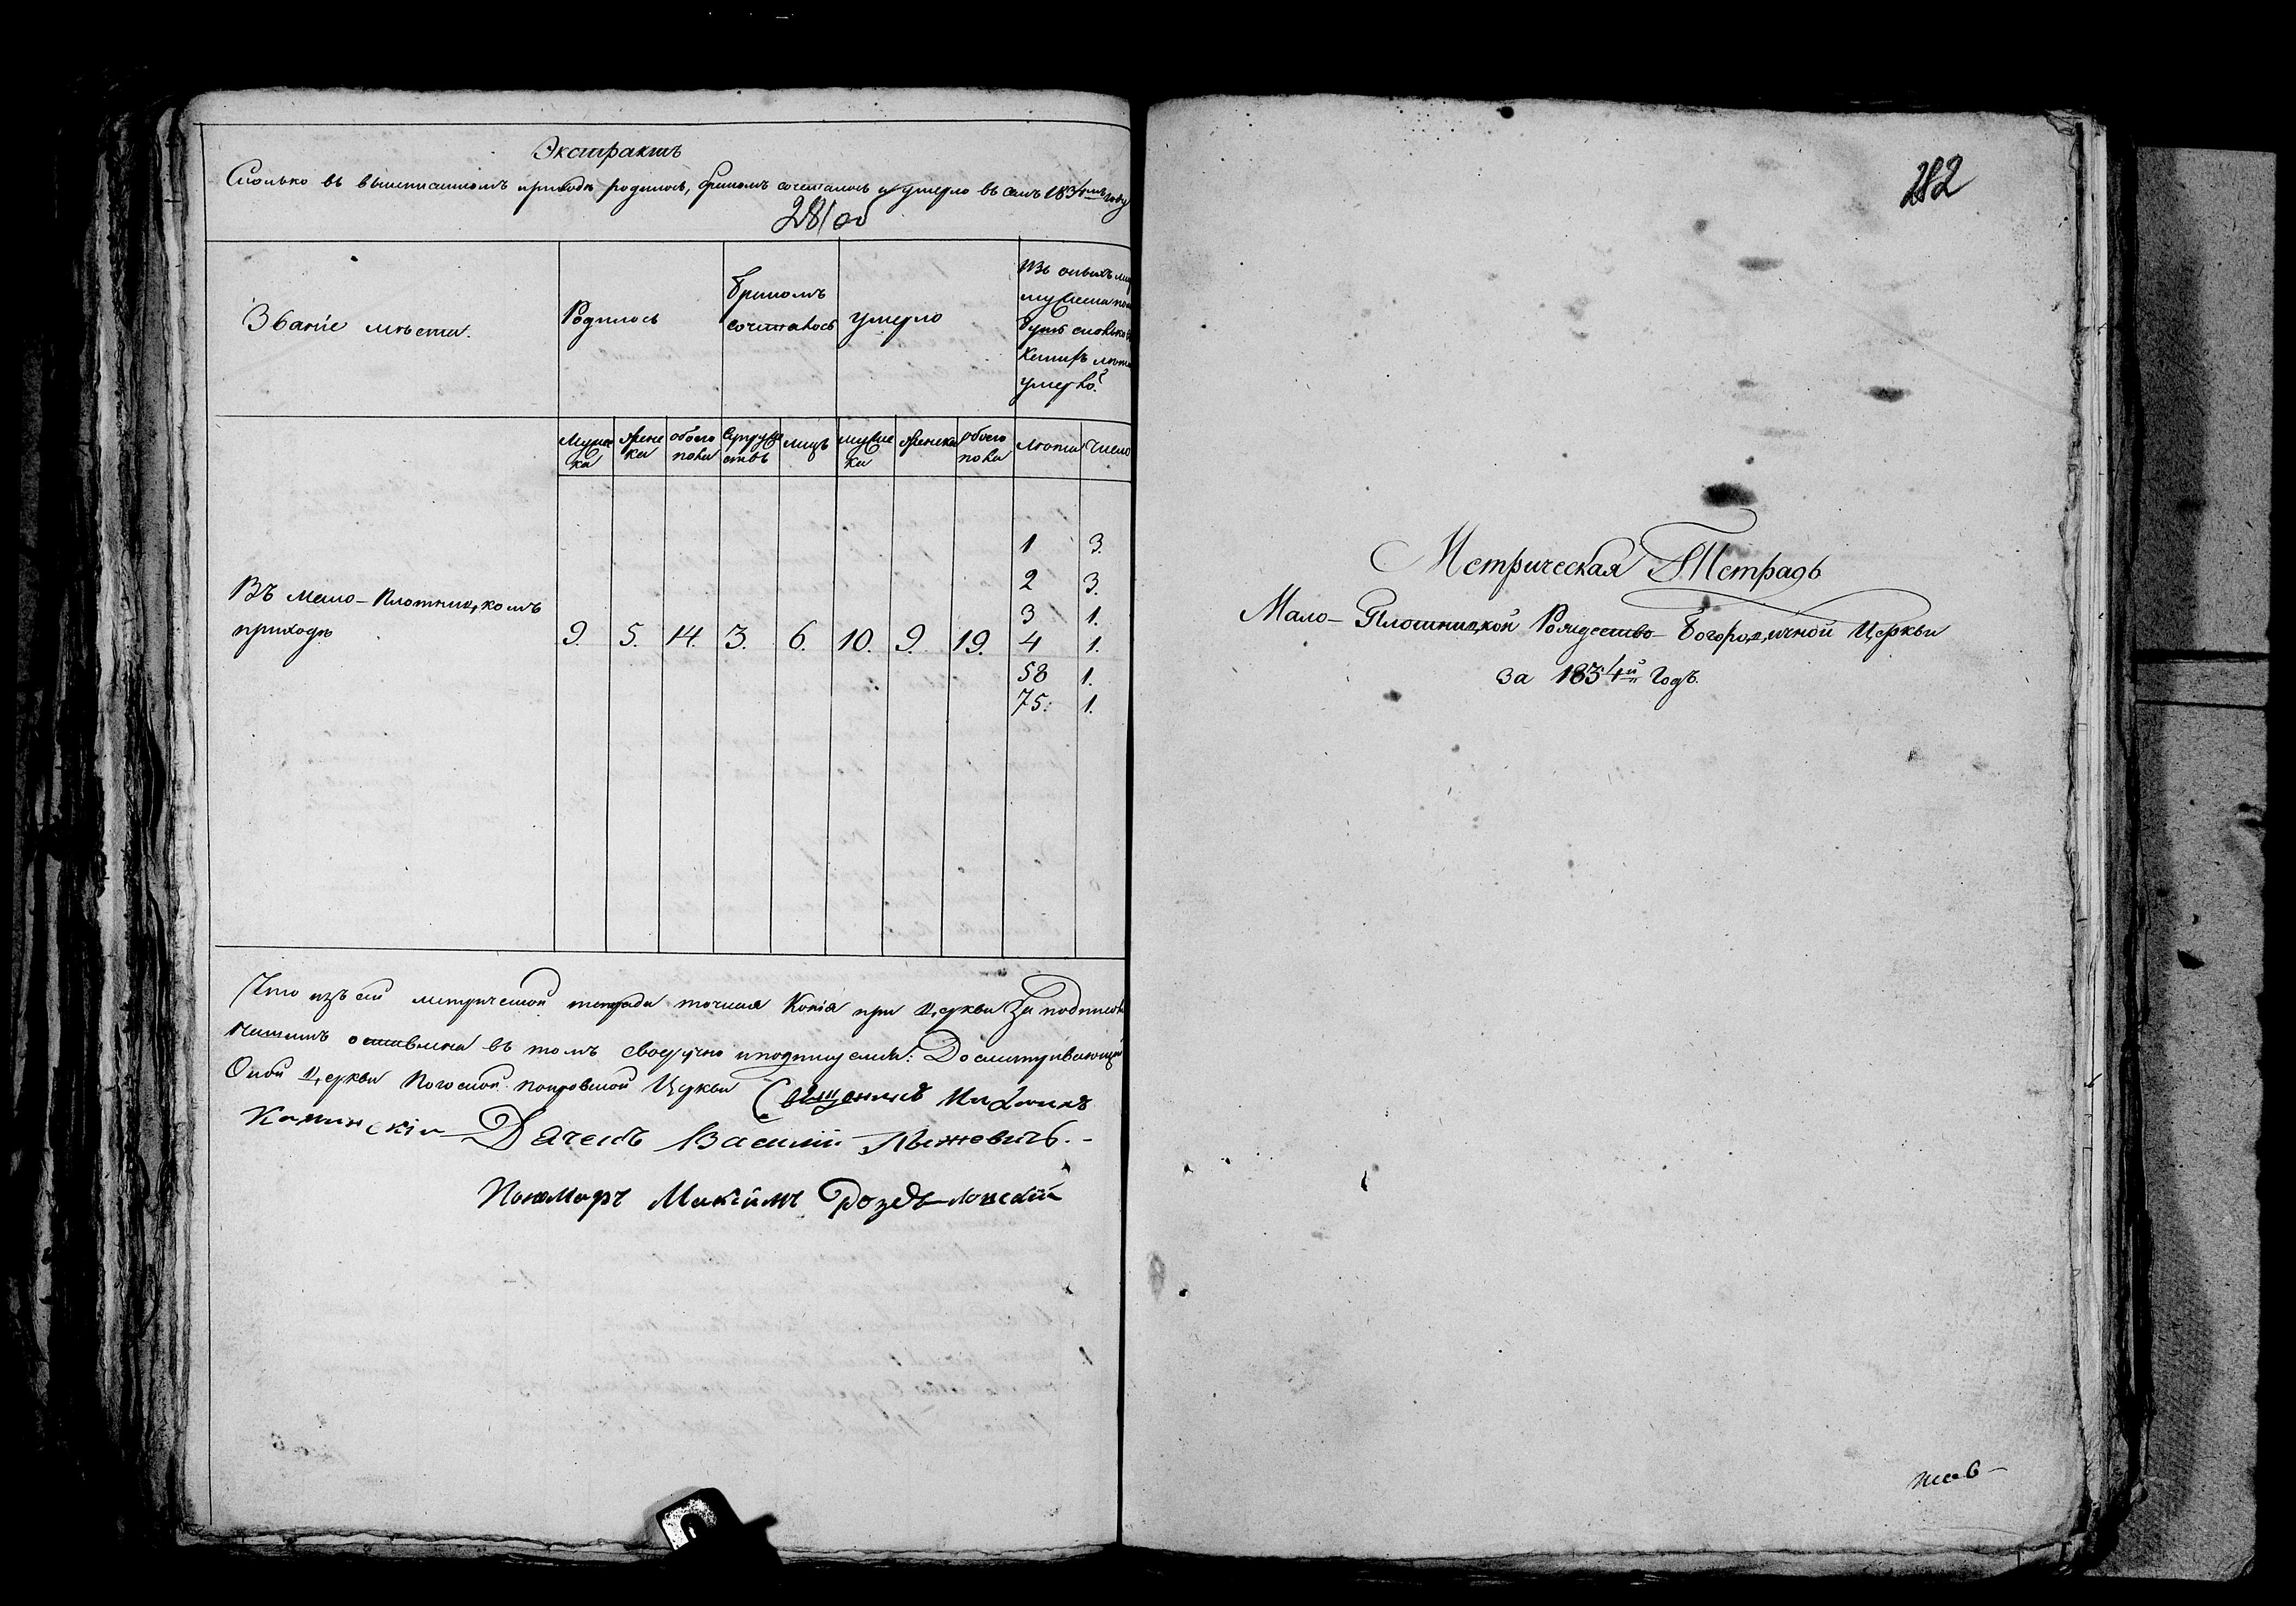 Экстрактъ
Сколько въ вышеписанномъ приходѣ родилось, бракомъ сочеталось и умерло въ семъ 1834мъ году
281 об
Званіе мѣста.
Родилось
бракомъ
сочеталось
умерло
Изъ оныхъ
мужеска
сколько
лѣтъ
умерло?
Муже
ска
Жене
ска
обоего
пола
Супруже
ствъ
лицъ
муже
ска
женска
обоего
пола
лѣта
Число
Въ Мало-Плотницкомъ
приходѣ
9. 5. 14. 3. 6. 10. 9. 19.
1 3.
2 3.
3 1.
4 1.
58 1.
75. 1.
Что изъ сей метрической тетради точная Копія при Церкви За подписомъ
нашимъ оставлена въ томъ своеручно подписуемся:
Оной Церкви Погоской Покровской Церкви Священникъ Михаилъ
Каминскій Дячекъ Василій Лыжевичъ.
Пономарь Максимъ
282
Метрическая Тетрадь
Мало-Плотницкой Рождество-Богородичной Церкви
за 1834й Годъ.